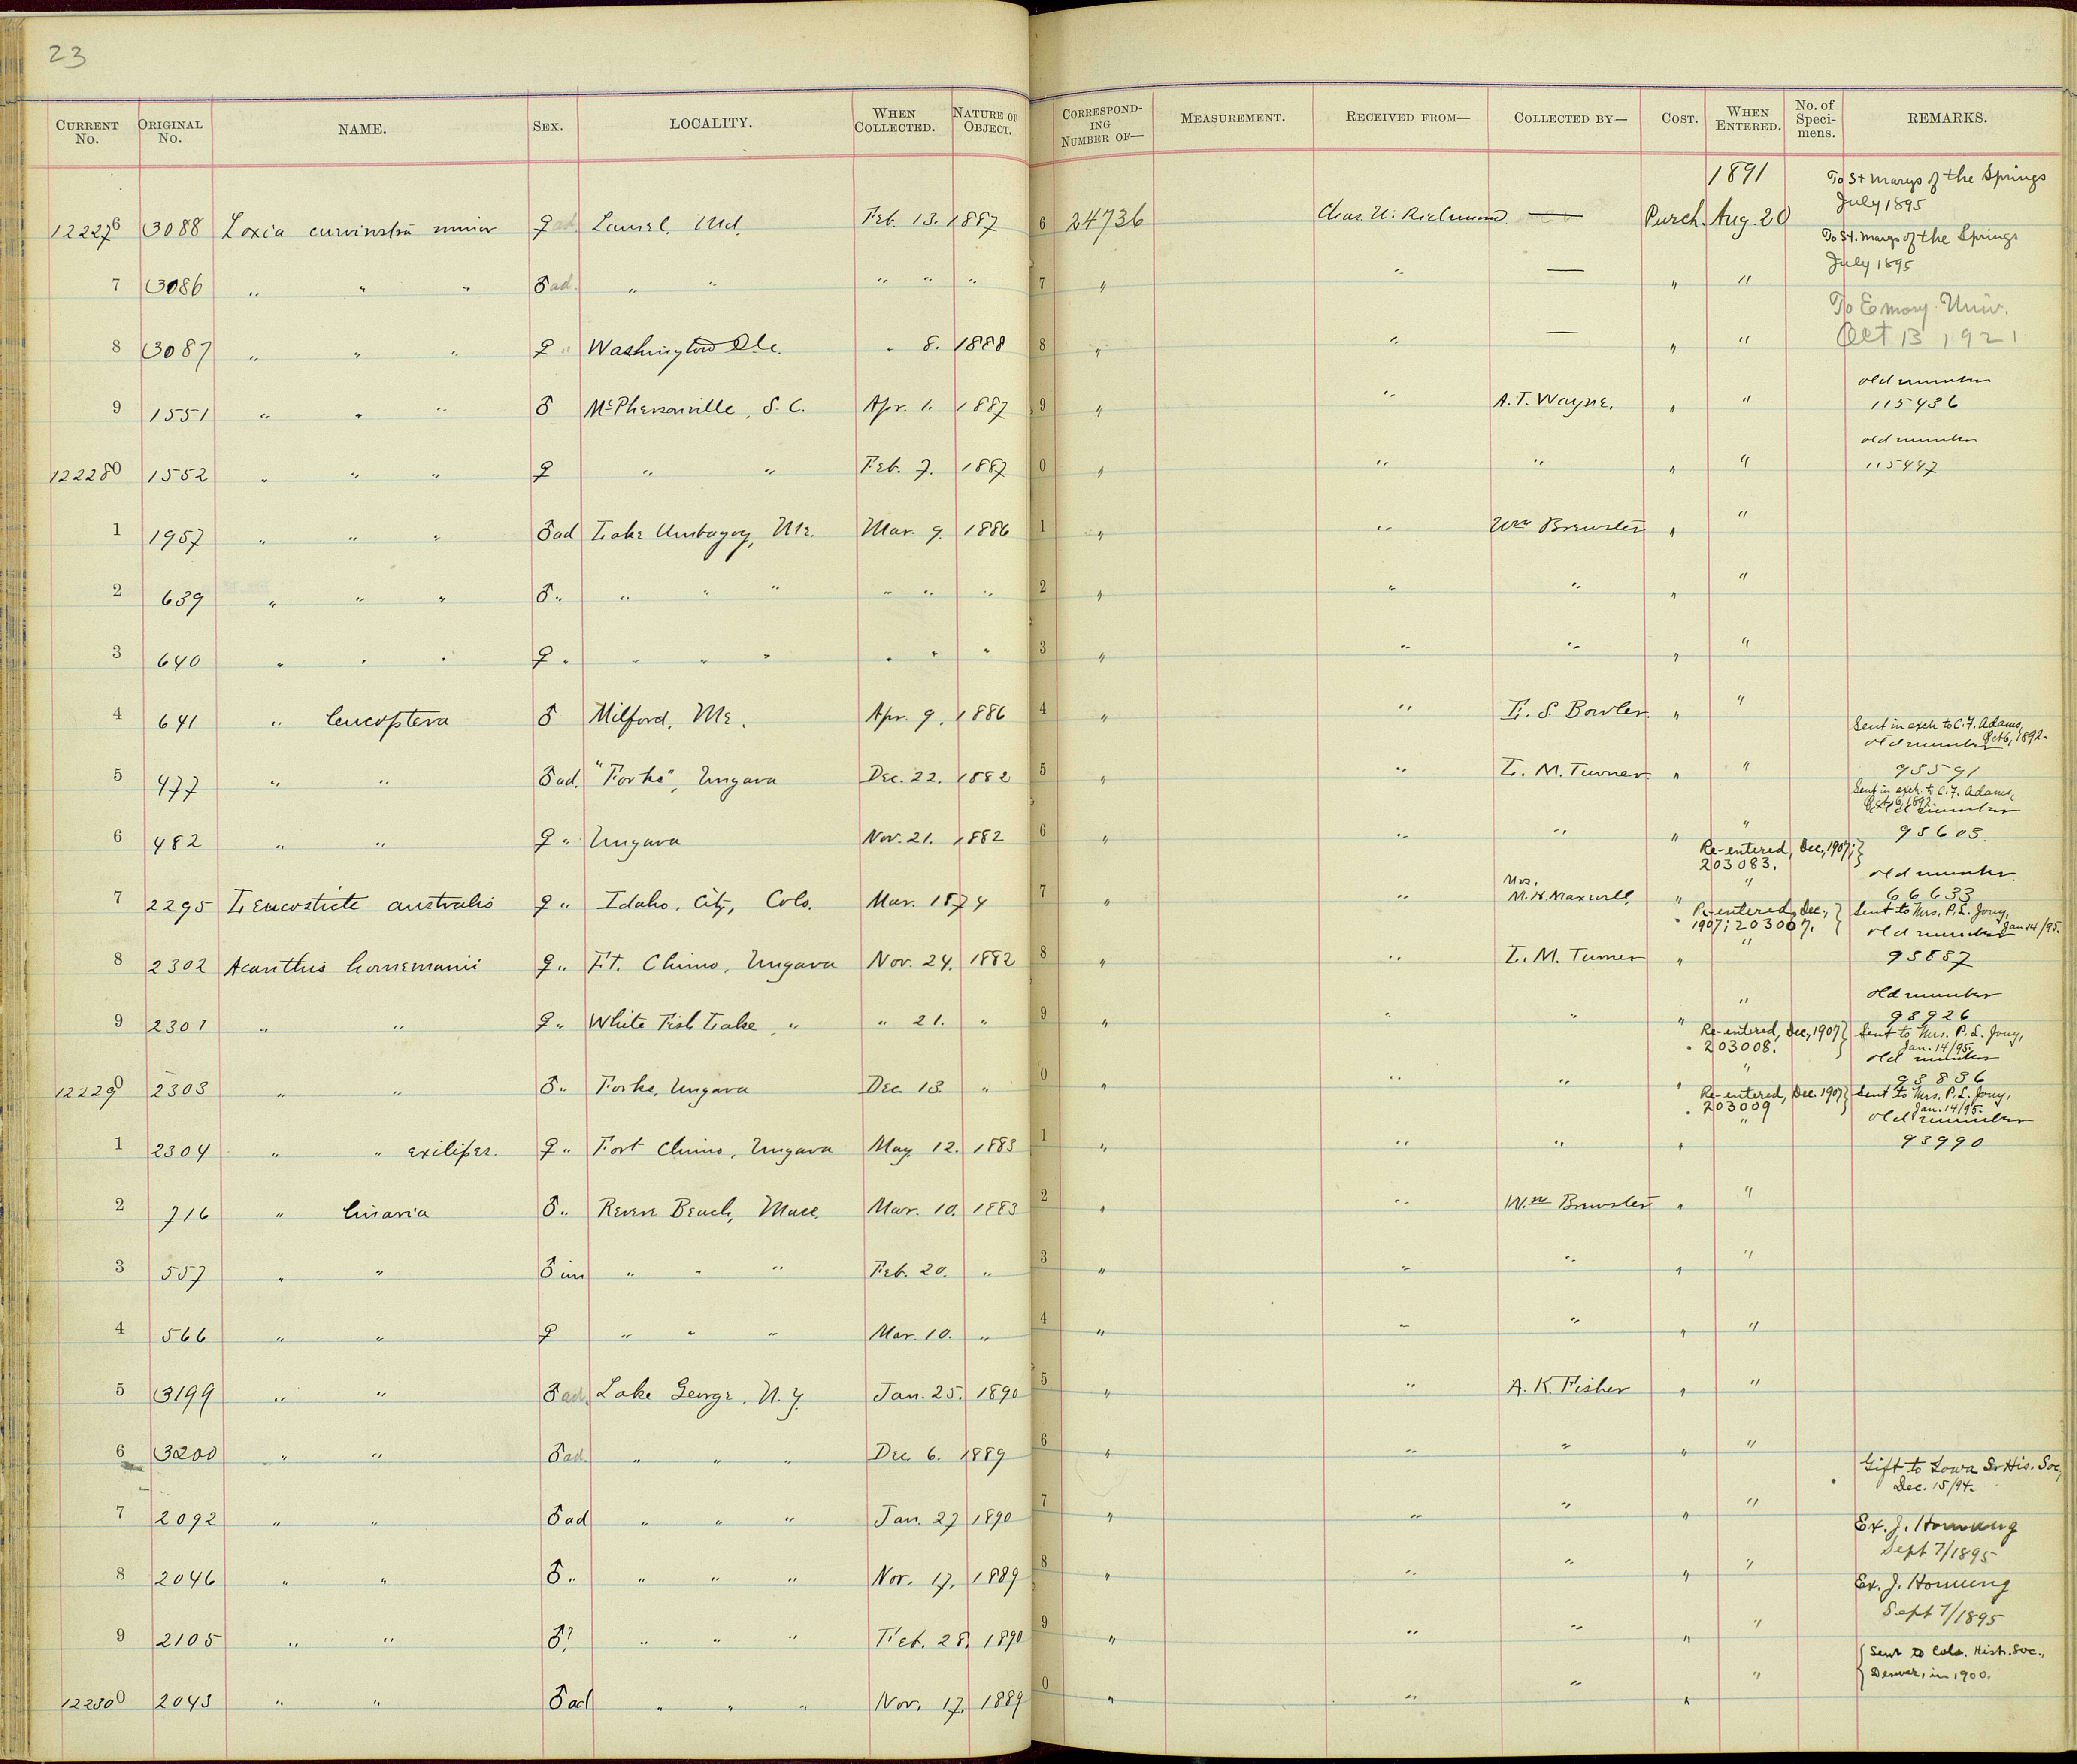 23
CURRENT No. ORIGINAL No. NAME. SEX. LOCALITY. WHEN COLLECTED. NATURE OF OBJECT. CORRESPONDING NUMBER OF— MEASUREMENT. RECEIVED FROM— COLLECTED BY— COST. WHEN ENTERED. No. of Specimens. REMARKS.
1891 To St Marys of the Springs July 1895
122276 3088 Loxia curvirostra minor ♀ ad. Laurel, Md. Feb. 13. 1887 6 24736 Chas. W. Richmond — Purch. Aug. 20
To St. Marys of the Springs July 1895
7 3086 " " " ♂ ad. " " " " " 7 " " — " "
To Emory Univ. Oct 13 1921
8 3087 " " " ♀ " Washington D.C. " 8. 1888 8 " " — " "
9 1551 " " " ♂ McPhersonville, S.C. Apr. 1. 1887 9 " " A.T. Wayne. " " old number 115436
122280 1552 " " " ♀ " " Feb. 7. 1887 0 " " " " " old number 115447
1 1957 " " " ♂ ad Lake Umbagog, Me. Mar. 9. 1886 1 " " Wm Brewster " "
2 639 " " " ♂ " " " " " " " 2 " " " " "
3 640 " " " ♀ " " " " " " " 3 " " " " "
4 641 " leucoptera ♂ Milford, Me. Apr. 9. 1886 4 " " E. S. Bowler. " "
Sent in exch to C.F. Adams, Oct 6, 1892.
5 477 " " ♂ ad. "Forks", Ungava Dec. 22. 1882 5 " " L. M. Turner " " old number 93591
Sent in exch. to C.F. Adams, Oct 6, 1892.
6 482 " " ♀ " Ungava Nov. 21. 1882 6 " " " " " old number 93603.
Re-entered, Dec, 1907; 203083.
7 2295 Leucosticte australis ♀ " Idaho, City, Colo. Mar. 1874 7 " " Mrs. M.A. Maxwell, " " old number. 66633
Re-entered, Dec, 1907; 203007. Sent to Mrs. P.L. Jouy, Jan 14/95.
8 2302 Acanthis hornemanii ♀ " Ft. Chimo, Ungava Nov. 24. 1882 8 " " L. M. Turner " " old number 93887
9 2301 " " ♀ " White Fish Lake, " " 21. " 9 " " " " " old number 98926
Re-entered, Dec, 1907 203008. Sent to Mrs. P.L. Jouy, Jan. 14/95.
122290 2303 " " ♂ " Forks, Ungava Dec 13. " 0 " " " " " old number 93836
Re-entered, Dec. 1907 203009 Sent to Mrs. P.L. Jouy, Jan. 14/95.
1 2304 " " exilipes. ♀ " Fort Chimo, Ungava May 12. 1883 1 " " " " " old number 93990
2 716 " linaria ♂ " Revere Beach, Mass. Mar. 10. 1883 2 " " Wm Brewster " "
3 557 " " ♂ im " " " Feb. 20. " 3 " " " " "
4 566 " " ♀ " " " Mar. 10. " 4 " " " " "
5 3199 " " ♂ ad. Lake George, N.Y. Jan. 25. 1890 5 " " A. K. Fisher " "
6 3200 " " ♂ ad. " " " Dec 6. 1889 6 " " " " "
Gift to Iowa Hist. Soc, Dec. 15/94.
7 2092 " " ♂ ad " " " Jan. 27 1890 7 " " " " "
Ex. J. Hornung Sept 7/1895
8 2046 " " ♂ " " " " Nov. 17. 1889 8 " " " " "
Ex. J. Hornung Sept 7/1895
9 2105 " " ♂? " " " Feb. 28. 1890 9 " " " " "
Sent to Colo. Hist. Soc., Denver, in 1900.
122300 2043 " " ♂ ad " " " Nov. 17. 1889 0 " " " " "